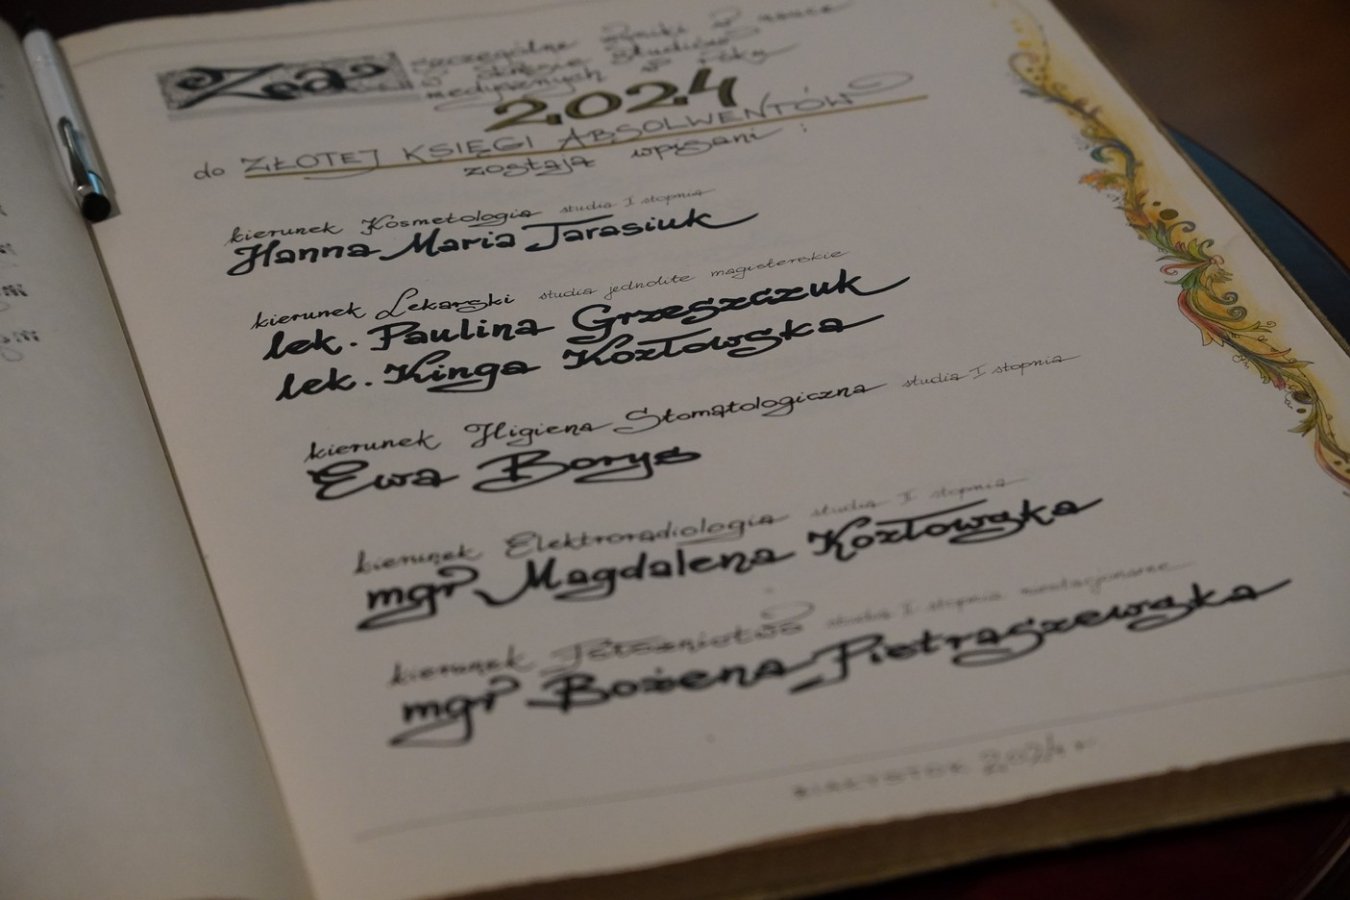 Za szczególne wyniki w nauce
w okresie studiów
medycznych w roku
2024
do ZŁOTEJ KSIĘGI ABSOLWENTÓW
zostają wpisani :
kierunek Kosmetologia studia I stopnia
Hanna Maria Tarasiuk
kierunek Lekarski studia jednolite magisterskie
lek. Paulina Grzeszczuk
lek. Kinga Kozłowska
kierunek Higiena Stomatologiczna studia I stopnia
Ewa Borys
kierunek Elektroradiologia studia II stopnia
mgr Magdalena Kozłowska
kierunek Położnictwo studia II stopnia niestacjonarne
mgr Bożena Pietraszewska
BIAŁYSTOK 2024 r.